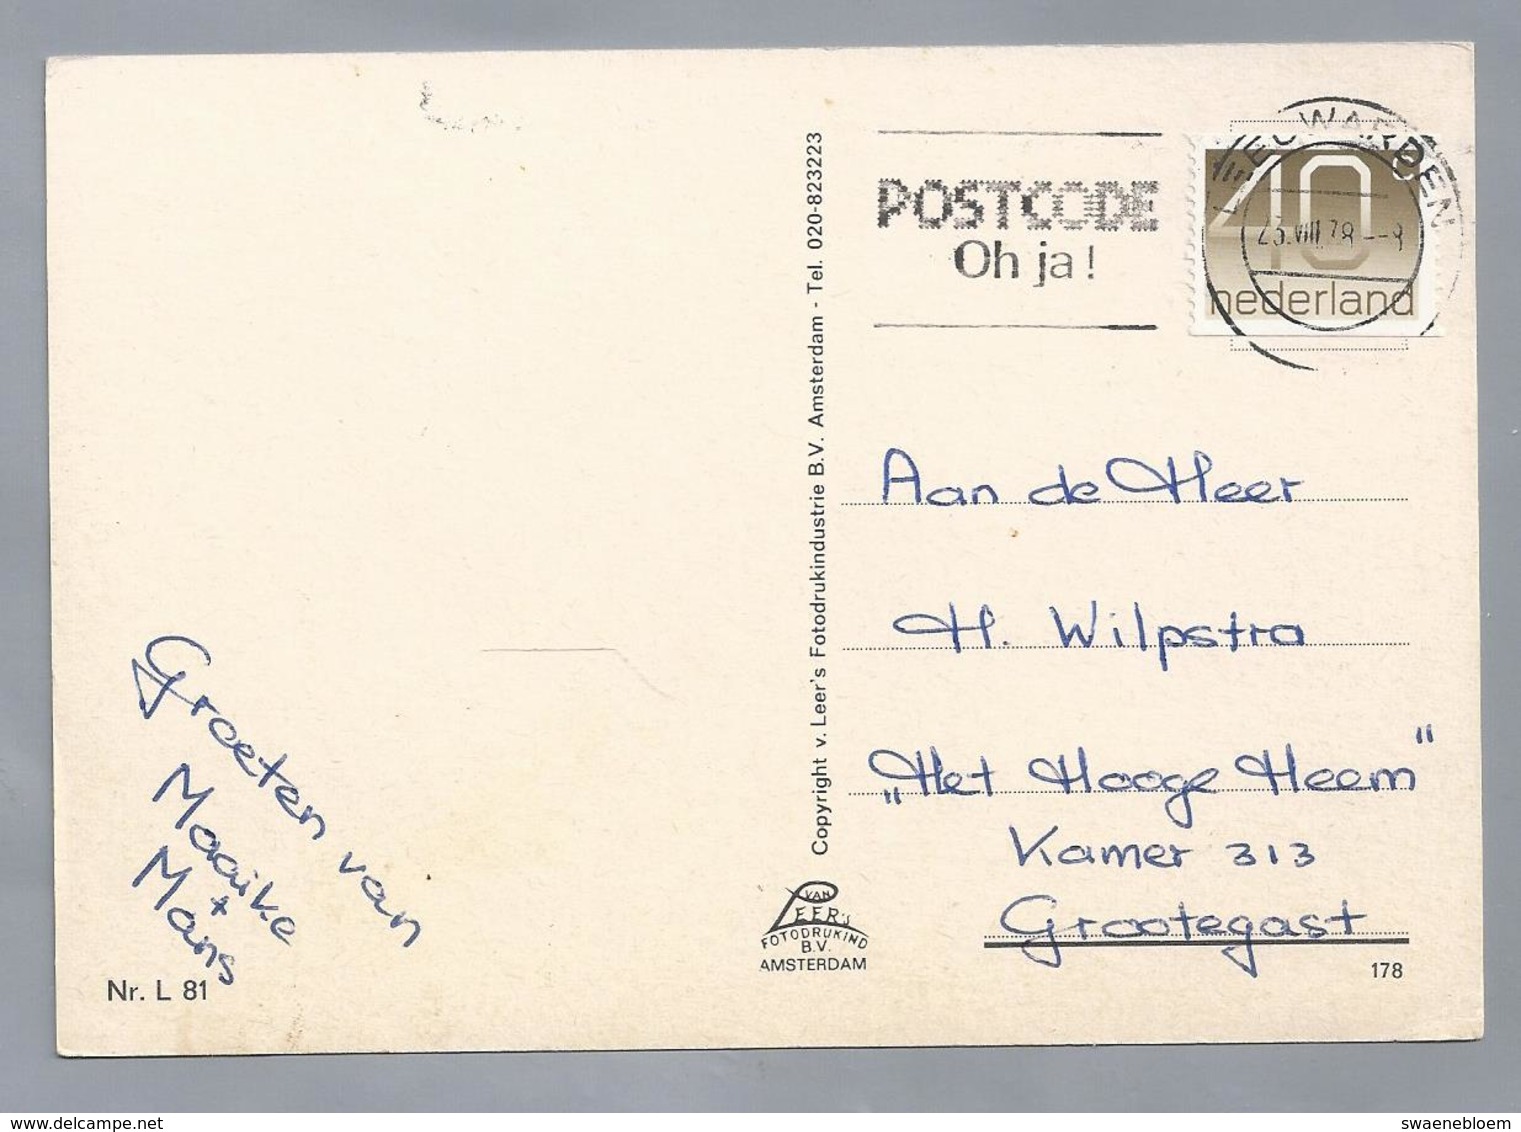 POSTCODE
Oh ja!
LEEUWARDEN
23.VIII.78--8
40c
nederland
Copyright v. Leer's Fotodrukindustrie B.V. Amsterdam - Tel. 020-823223
Aan de Heer
H. Wilpstra
„Het Hooge Heem"
Kamer 313
Grootegast
Groeten van
Maaike
+
Mans
Nr. L 81
VAN
LEER's
FOTODRUKIND
B.V.
AMSTERDAM
178
delcampe.net
swaenebloem